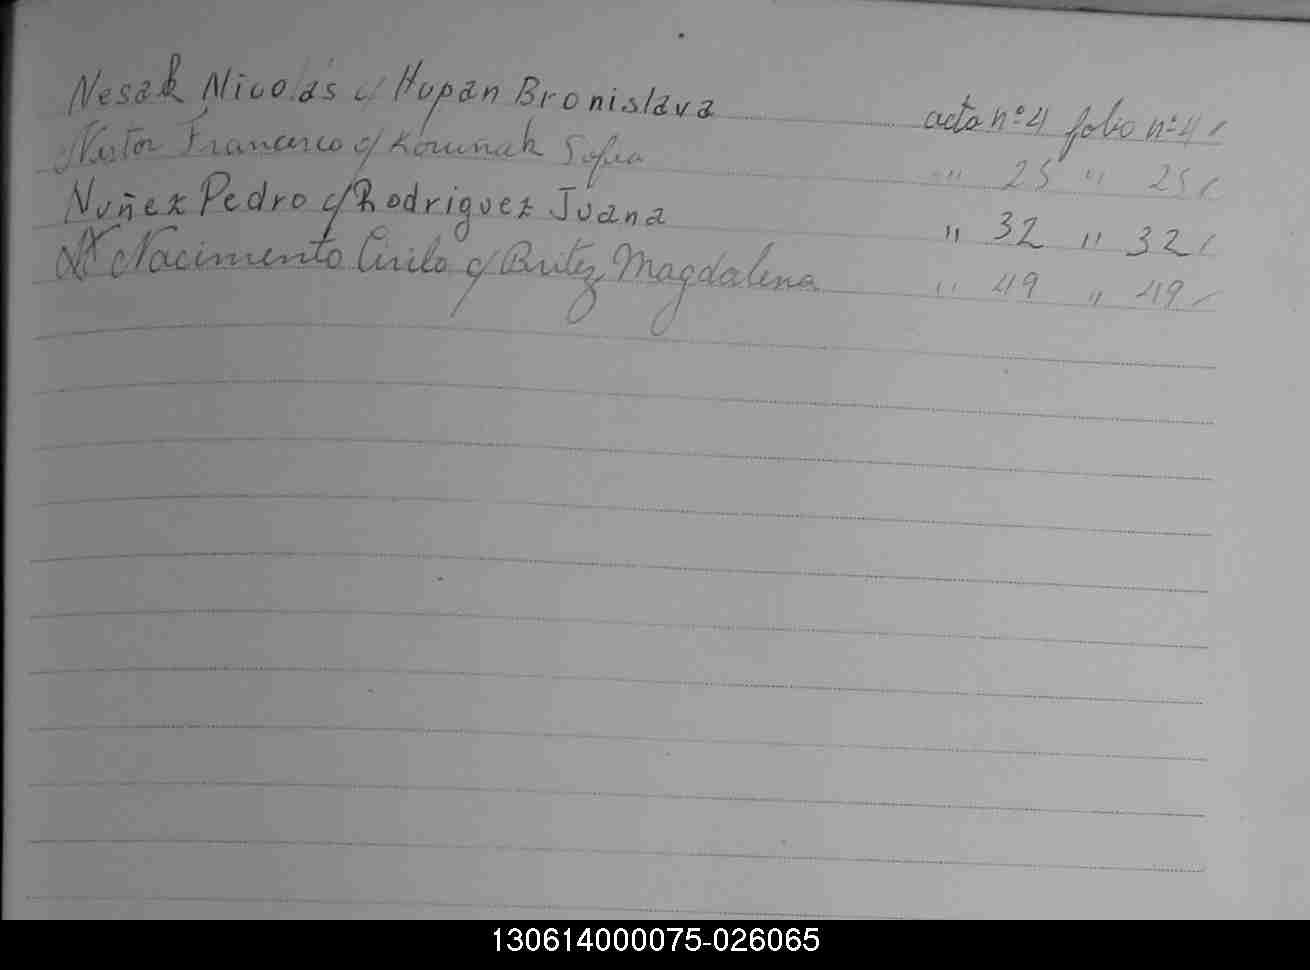 Nesak Nicolás c/ Hupan Bronislava acta nº 4 folio nº 4
Nestor Francisco c/ Korunak Sofia " 25 " 25
Nuñez Pedro c/ Rodriguez Juana " 32 " 32
Nacimento Cirilo c/ Britez Magdalena " 49 " 49
130614000075-026065